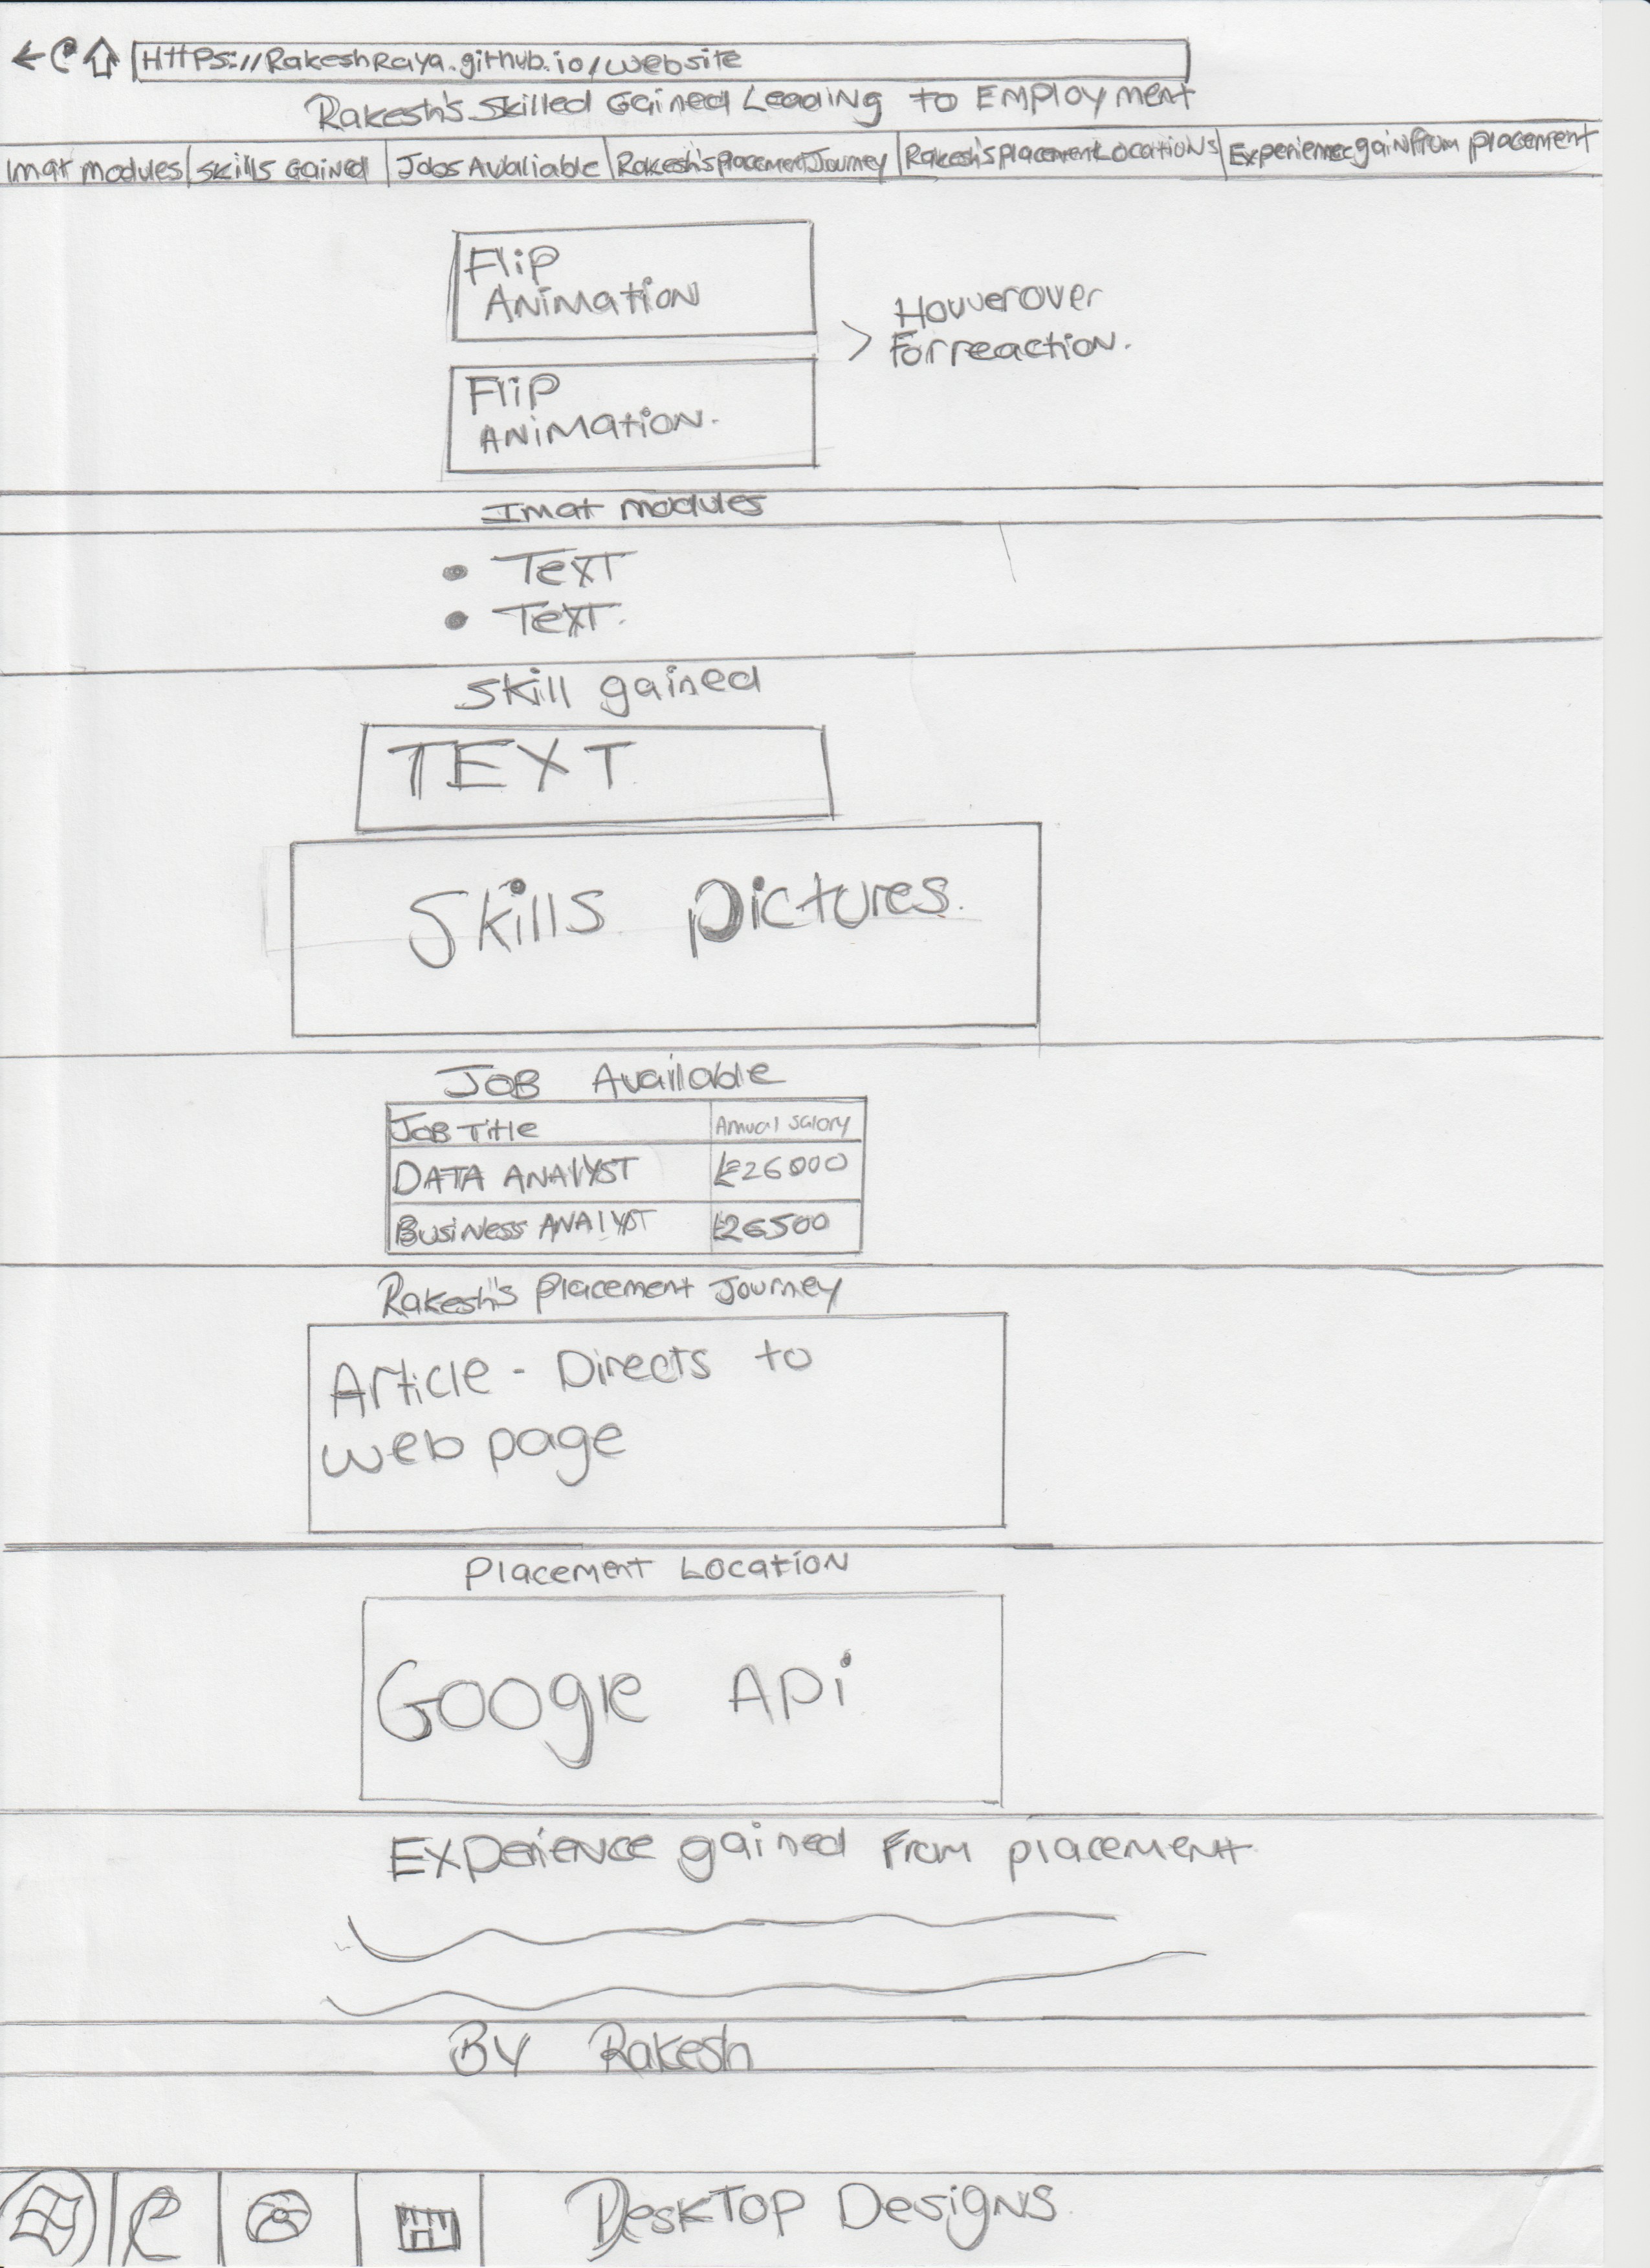 HTTPS://RakeshRaya.github.io/website
Rakesh's Skilled Gained Leading to Employment
Imat modules Skills Gained Jobs Avaliable Rakesh's placement Journey Rakesh's placement Locations Experience gain from placement
Flip
Animation
Houverover
For reaction.
Flip
Animation.
Imat modules
• Text
• Text.
Skill gained
TEXT
Skills pictures.
Job Available
Job Title Annual Salary
DATA ANALYST £26000
Business ANALYST £26500
Rakesh's Placement Journey
Article - Directs to
web page
Placement Location
Google Api
Experience gained from placement
By Rakesh
Desktop Designs